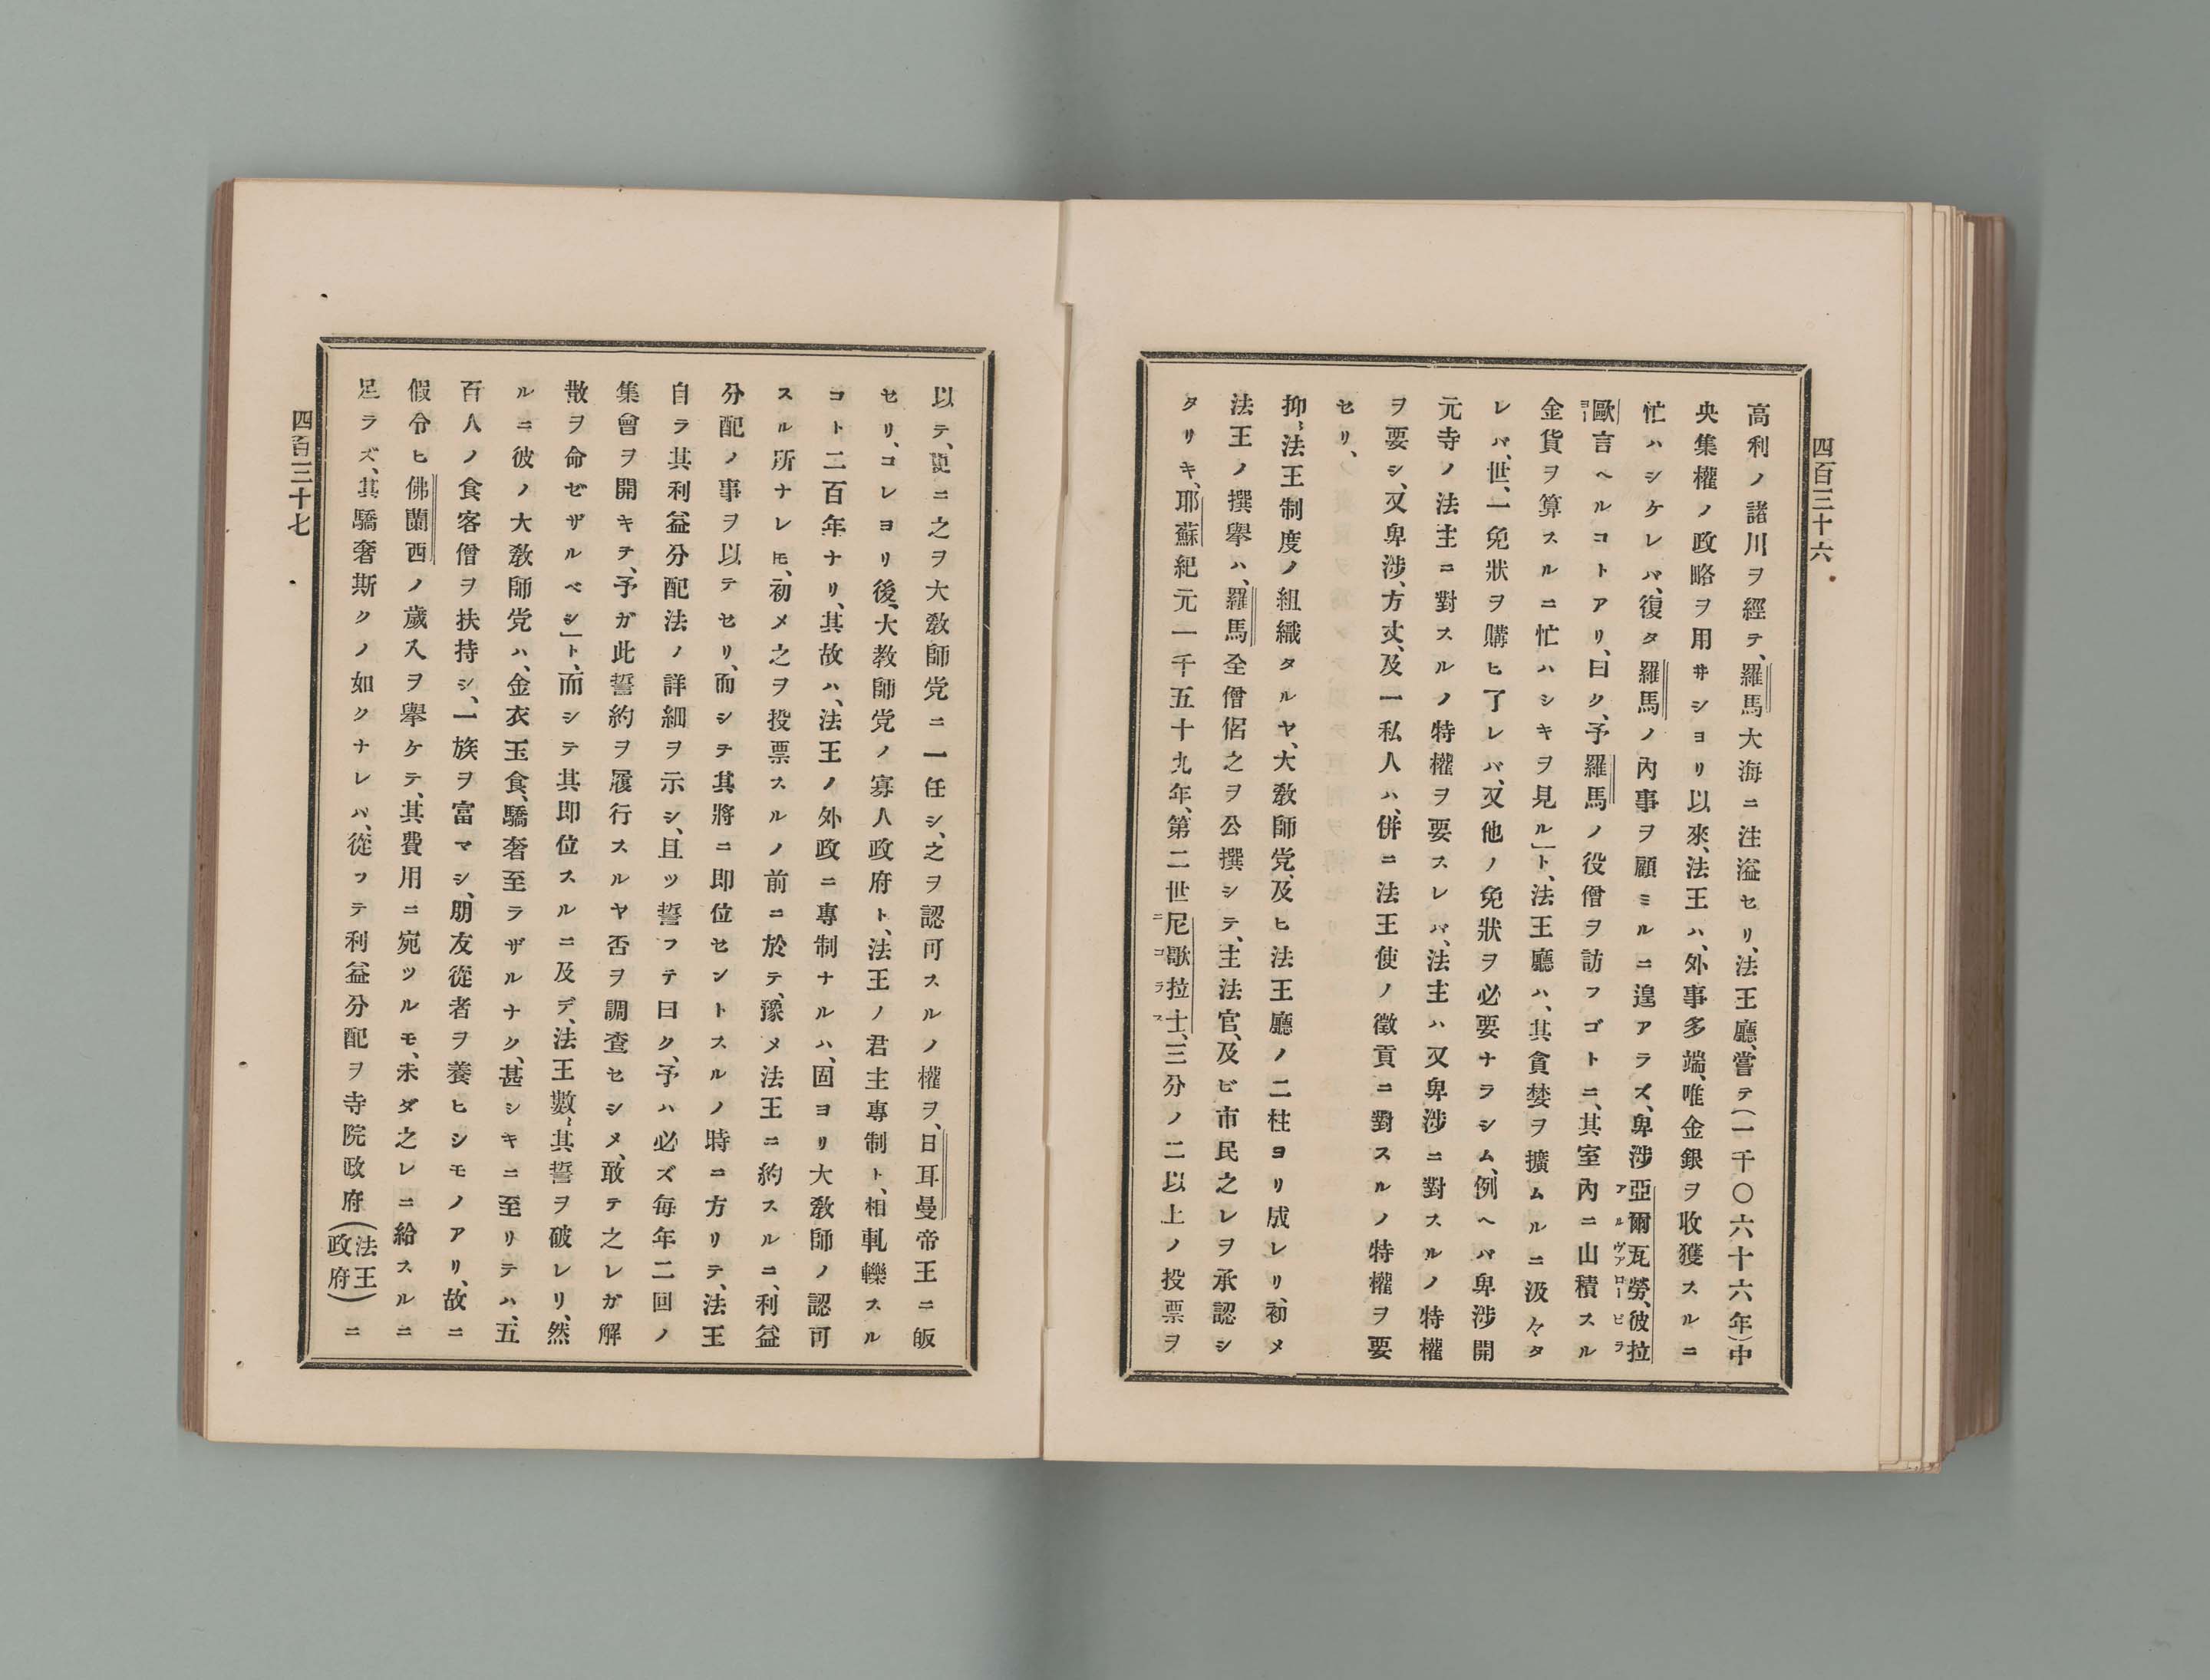 四百三十六
高利ノ諸川ヲ經テ、羅馬大海ニ注溢セリ、法王廳、嘗テ(一千〇六十六年)中
央集權ノ政略ヲ用井シヨリ以來、法王ハ、外事多端、唯金銀ヲ收獲スルニ
忙ハシケレバ、復タ羅馬ノ內事ヲ顧ミルニ遑アラズ、卑涉亞爾瓦勞、彼拉
アルヴアローピラ
歐言ヘルコトアリ、曰ク、予羅馬ノ役僧ヲ訪フゴトニ、其室內ニ山積スル
ヨー
金貨ヲ算スルニ忙ハシキヲ見ル」ト、法王廳ハ、其貪婪ヲ擴ムルニ汲々タ
レバ、世、一免狀ヲ購ヒ了レバ、又他ノ免狀ヲ必要ナラシム、例ヘバ卑涉開
元寺ノ法主ニ對スルノ特權ヲ要スレバ、法主ハ又卑涉ニ對スルノ特權
ヲ要シ、又卑涉、方丈、及一私人ハ、併ニ法王使ノ徵貢ニ對スルノ特權ヲ要
セリ、
抑、法王制度ノ組織タルヤ、大敎師党、及ヒ法王廳ノ二柱ヨリ成レリ、初メ
法王ノ撰擧ハ、羅馬全僧侶之ヲ公撰シテ、主法官、及ビ市民之レヲ承認シ
タリキ、耶蘇紀元一千五十九年、第二世尼歇拉士、三分ノ二以上ノ投票ヲ
ニコラス
以テ、更ニ之ヲ大敎師党ニ一任シ、之ヲ認可スルノ權ヲ、日耳曼帝王ニ皈
セリ、コレヨリ後、大教師党ノ寡人政府ト、法王ノ君主專制ト、相軋轢スル
コト二百年ナリ、其故ハ、法王ノ外政ニ專制ナルハ、固ヨリ大敎師ノ認可
スル所ナレ𪜈、初メ之ヲ投票スルノ前ニ於テ、豫メ法王ニ約スルニ、利益
分配ノ事ヲ以テセリ、而シテ其將ニ即位セントスルノ時ニ方リテ、法王
自ラ其利益分配法ノ詳細ヲ示シ、且ツ誓フテ曰ク、予ハ必ズ每年二回ノ
集會ヲ開キテ、予ガ此誓約ヲ履行スルヤ否ヲ調查セシメ、敢テ之レガ解
散ヲ命ゼザルベシ」ト、而シテ其即位スルニ及デ、法王數〻其誓ヲ破レリ、然
ルニ彼ノ大敎師党ハ、金衣玉食、驕奢至ラザルナク、甚シキニ至リテハ、五
百人ノ食客僧ヲ扶持シ、一族ヲ富マシ、朋友從者ヲ養ヒシモノアリ、故ニ
假令ヒ佛蘭西ノ歲入ヲ擧ケテ、其費用ニ宛ツルモ、未ダ之レニ給スルニ
足ラズ、其驕奢斯クノ如クナレバ、從フテ利益分配ヲ寺院政府(法王政府)ニ
四百三十七